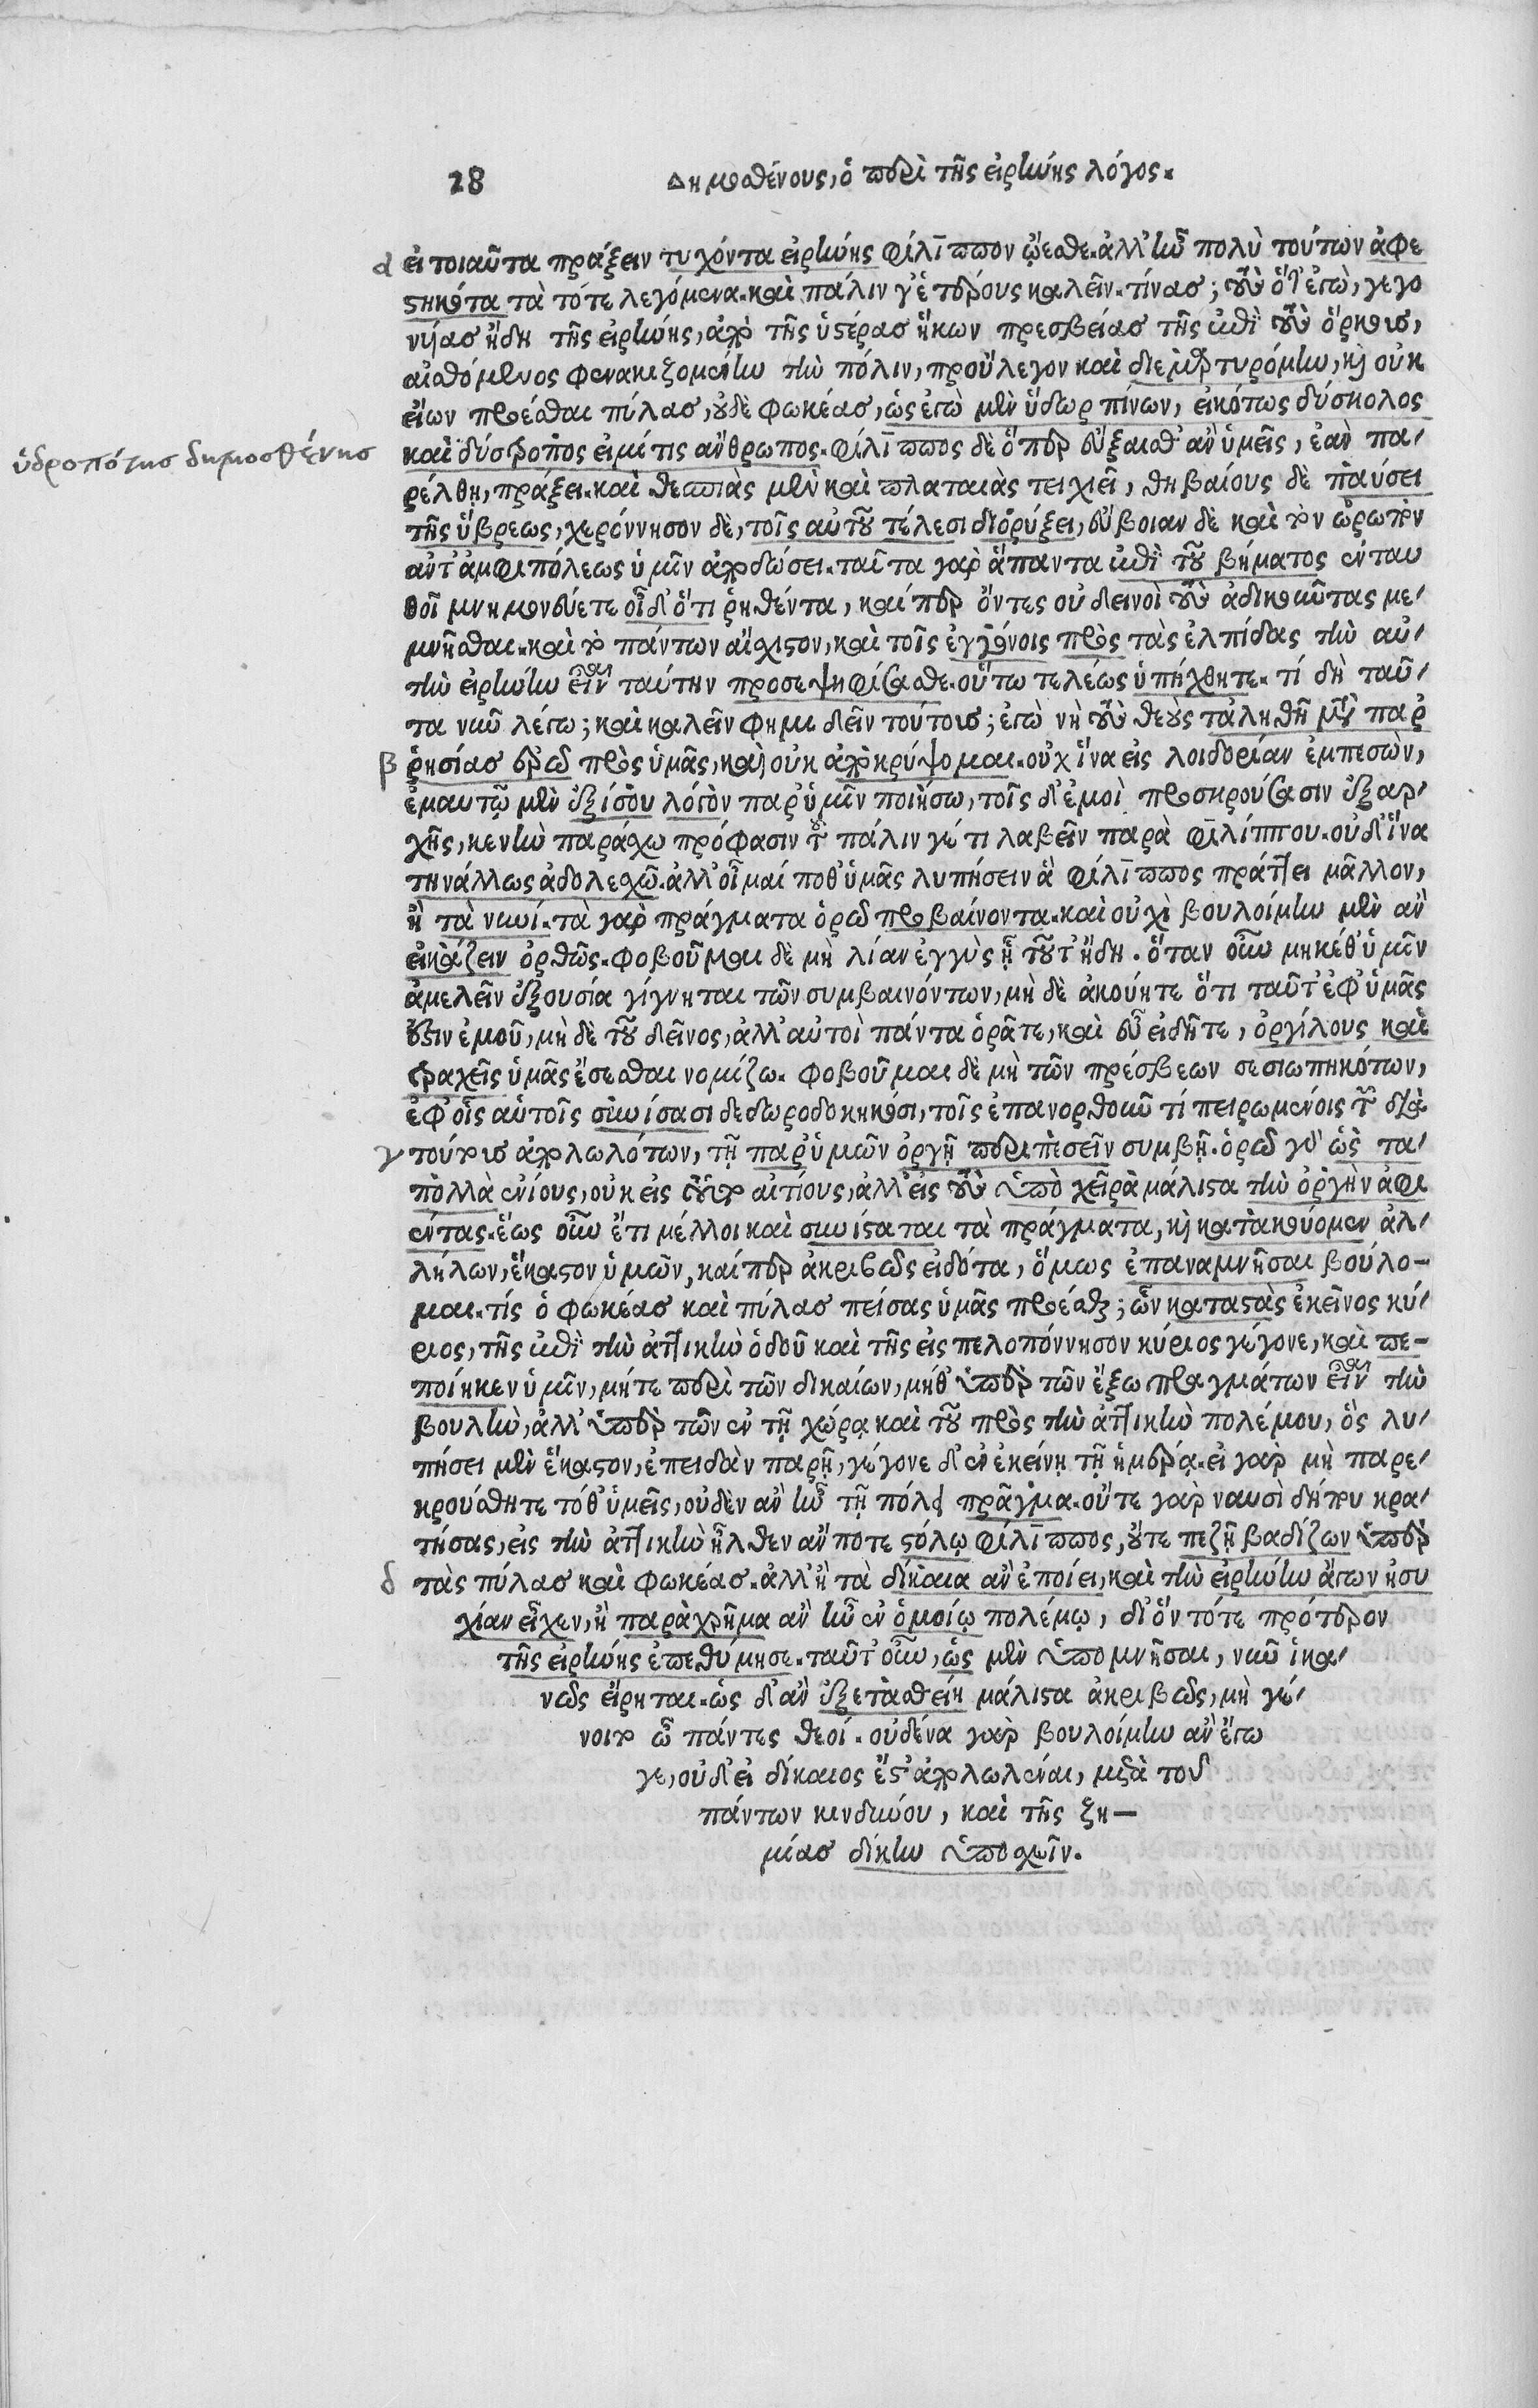 28
Δημοσθένους, ὁ περὶ τῆς εἰρήνης λόγος.
α εἰ τοιαῦτα πράξειν τυχόντα εἰρήνης Φίλιππον ᾤεσθε. ἀλλ' ἦν πολὺ τούτων ἀφε
στηκότα τὰ τότε λεγόμενα. καὶ πάλιν γ' ἑτέρους καλεῖν. τίνας; τοὺς ὅτ' ἐγὼ, γεγο
νυίας ἤδη τῆς εἰρήνης, ἀπὸ τῆς ὑστέρας ἥκων πρεσβείας τῆς ἐπὶ τοὺς ὅρκους,
αἰσθόμενος φενακιζομένην τὴν πόλιν, προὔλεγον καὶ διεμαρτυρόμην, καὶ οὐκ
εἴων προέσθαι πύλας, οὐδὲ φωκέας, ὡς ἐγὼ μὲν ὕδωρ πίνων, εἰκότως δύσκολος
ὑδροπότης δημοσθένης
καὶ δύστροπος εἰμί τις ἄνθρωπος. Φίλιππος δὲ ὅπερ εὔξαισθ' ἂν ὑμεῖς, ἐὰν πα-
ρέλθῃ, πράξει. καὶ θεσπιὰς μὲν καὶ πλαταιὰς τειχιεῖ, θηβαίους δὲ παύσει
τῆς ὕβρεως, χερόννησον δὲ, τοῖς αὑτοῦ τέλεσι διορύξει, εὔβοιαν δὲ καὶ τὸν ὠρωπὸν
ἀντ' ἀμφιπόλεως ὑμῖν ἀποδώσει. ταῦτα γὰρ ἅπαντα ἐπὶ τοῦ βήματος ἐνταυ
θοῖ μνημονεύετε οἶδ' ὅτι ῥηθέντα, καίπερ ὄντες οὐ δεινοὶ τοὺς ἀδικοῦντας με-
μνῆσθαι. καὶ τὸ πάντων αἴσχιστον, καὶ τοῖς ἐγγόνοις πρὸς τὰς ἐλπίδας τὴν αὐ-
τὴν εἰρήνην εἶναι ταύτην προσεψηφίσασθε. οὕτω τελέως ὑπήχθητε. τί δὴ ταῦ-
τα νῦν λέγω; καὶ καλεῖν φημι δεῖν τούτους; ἐγὼ νὴ τοὺς θεοὺς τἀληθῆ μετὰ παρ
β ῥησίας ἐρῶ πρὸς ὑμᾶς, καὶ οὐκ ἀποκρύψομαι. οὐχ ἵνα εἰς λοιδορίαν ἐμπεσὼν,
ἐμαυτῷ μὲν ἐξίσου λόγον παρ' ὑμῖν ποιήσω, τοῖς δ' ἐμοὶ προσκρούσασιν ἐξαρ-
χῆς, κενὴν παράσχω πρόφασιν τοῦ πάλιν γέ τι λαβεῖν παρὰ Φιλίππου. οὐδ' ἵνα
τηνάλλως ἀδολεσχῶ. ἀλλ' οἶμαί ποθ' ὑμᾶς λυπήσειν ἃ Φίλιππος πράττει μᾶλλον,
ἢ τὰ νυνί. τὰ γὰρ πράγματα ὁρῶ προβαίνοντα. καὶ οὐχὶ βουλοίμην μὲν ἂν
εἰκάζειν ὀρθῶς. φοβοῦμαι δὲ μὴ λίαν ἐγγὺς ᾖ τοῦτ' ἤδη. ὅταν οὖν μηκέθ' ὑμῖν
ἀμελεῖν ἐξουσία γίγνηται τῶν συμβαινόντων, μὴ δὲ ἀκούητε ὅτι ταῦτ' ἐφ' ὑμᾶς
ἐστιν ἐμοῦ, μὴ δὲ τοῦ δεῖνος, ἀλλ' αὐτοὶ πάντα ὁρᾶτε, καὶ εὖ εἰδῆτε, ὀργίλους καὶ
τραχεῖς ὑμᾶς ἔσεσθαι νομίζω. φοβοῦμαι δὲ μὴ τῶν πρέσβεων σεσιωπηκότων,
ἐφ' οἷς αὑτοῖς συνίσασι δεδωροδοκηκόσι, τοῖς ἐπανορθοῦν τί πειρωμένοις τῶν διὰ
γ τούτους ἀπολωλότων, τῇ παρ' ὑμῶν ὀργῇ περιπεσεῖν συμβῇ. ὁρῶ γὰρ ὡς τα-
πολλὰ ἐνίους, οὐκ εἰς τοὺς αἰτίους, ἀλλ' εἰς τοὺς ὑπὸ χεῖρα μάλιστα τὴν ὀργὴν ἀφι
έντας. ἕως οὖν ἔτι μέλλοι καὶ συνίσταται τὰ πράγματα, καὶ κατακούομεν ἀλ-
λήλων, ἕκαστον ὑμῶν, καίπερ ἀκριβῶς εἰδότα, ὅμως ἐπαναμνῆσαι βούλο-
μαι. τίς ὁ φωκέας καὶ πύλας πείσας ὑμᾶς προέσθαι; ὧν καταστὰς ἐκεῖνος κύ-
ριος, τῆς ἐπὶ τὴν ἀττικὴν ὁδοῦ καὶ τῆς εἰς πελοπόννησον κύριος γέγονε, καὶ πε-
ποίηκεν ὑμῖν, μήτε περὶ τῶν δικαίων, μήθ' ὑπὲρ τῶν ἔξω πραγμάτων εἶναι τὴν
βουλὴν, ἀλλ' ὑπὲρ τῶν ἐν τῇ χώρᾳ καὶ τοῦ πρὸς τὴν ἀττικὴν πολέμου, ὃς λυ-
πήσει μὲν ἕκαστον, ἐπειδὰν παρῇ, γέγονε δ' ἐν ἐκείνῃ τῇ ἡμέρᾳ. εἰ γὰρ μὴ παρε-
κρούσθητε τόθ' ὑμεῖς, οὐδὲν ἂν ἦν τῇ πόλει πρᾶγμα. οὔτε γὰρ ναυσὶ δήπου κρα-
τήσας, εἰς τὴν ἀττικὴν ἦλθεν ἄν ποτε στόλῳ Φίλιππος, οὔτε πεζῇ βαδίζων ὑπὲρ
δ τὰς πύλας καὶ φωκέας. ἀλλ' ἢ τὰ δίκαια ἂν ἐποίει, καὶ τὴν εἰρήνην ἄγων ἡσυ
χίαν εἶχεν, ἢ παράχρημα ἂν ἦν ἐν ὁμοίῳ πολέμῳ, δι' ὃν τότε πρότερον
τῆς εἰρήνης ἐπεθύμησε. ταῦτ' οὖν, ὡς μὲν ὑπομνῆσαι, νῦν ἱκα-
νῶς εἴρηται. ὡς δ' ἂν ἐξετασθείη μάλιστα ἀκριβῶς, μὴ γέ-
νοιτο ὦ πάντες θεοί. οὐδένα γὰρ βουλοίμην ἂν ἔγω
γε, οὐδ' εἰ δίκαιος ἔστ' ἀπολωλέναι, μετὰ τοῦ
πάντων κινδύνου, καὶ τῆς ζη-
μίας δίκην ὑποσχεῖν.